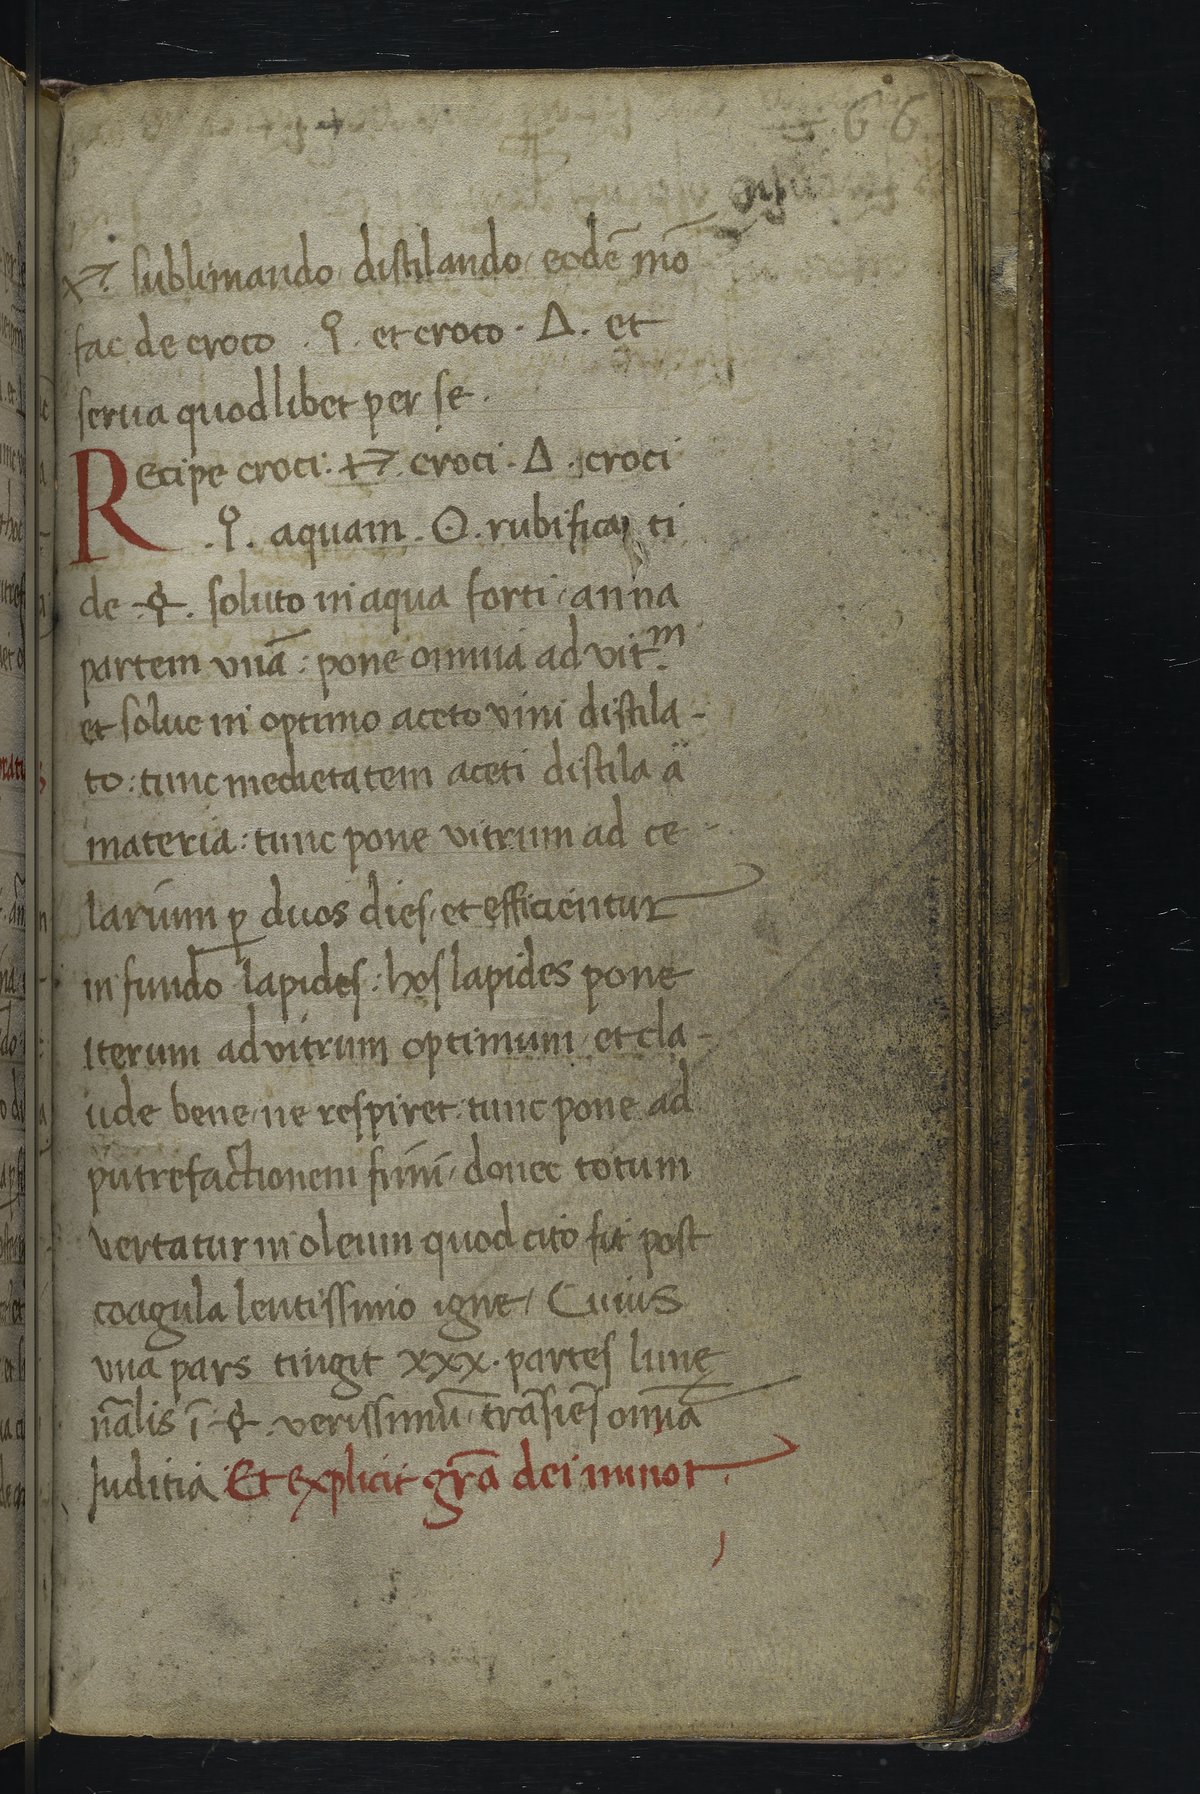 66
sublimando distilando eodē mō
fac de croco . ♀ . et croco . Δ . et
serua quodlibet per se .
Recipe croci . croci . Δ . croci
. ♀ . aquam . ʘ . rubificati
de soluto in aqua forti anna
partem vnā : pone omnia ad vit.ᵐ
et solue in optimo aceto vini distila-
to : tunc medietatem aceti distila ä
materia : tunc pone vitrum ad ce
larium ꝑ duos dies et efficientur
in fundo lapides : hos lapides pone
iterum ad vitrum optimum et cla-
ude bene ne respiret tunc pone ad
putrefactionem fimi donec totum
vertatur in oleum quod cito fit post
coagula lentissimo igne / Cuius
vna pars tingit xxx . partes lunę
nālis ī verissimū trāsiēs omīa
Iuditia Et explicit grā dei